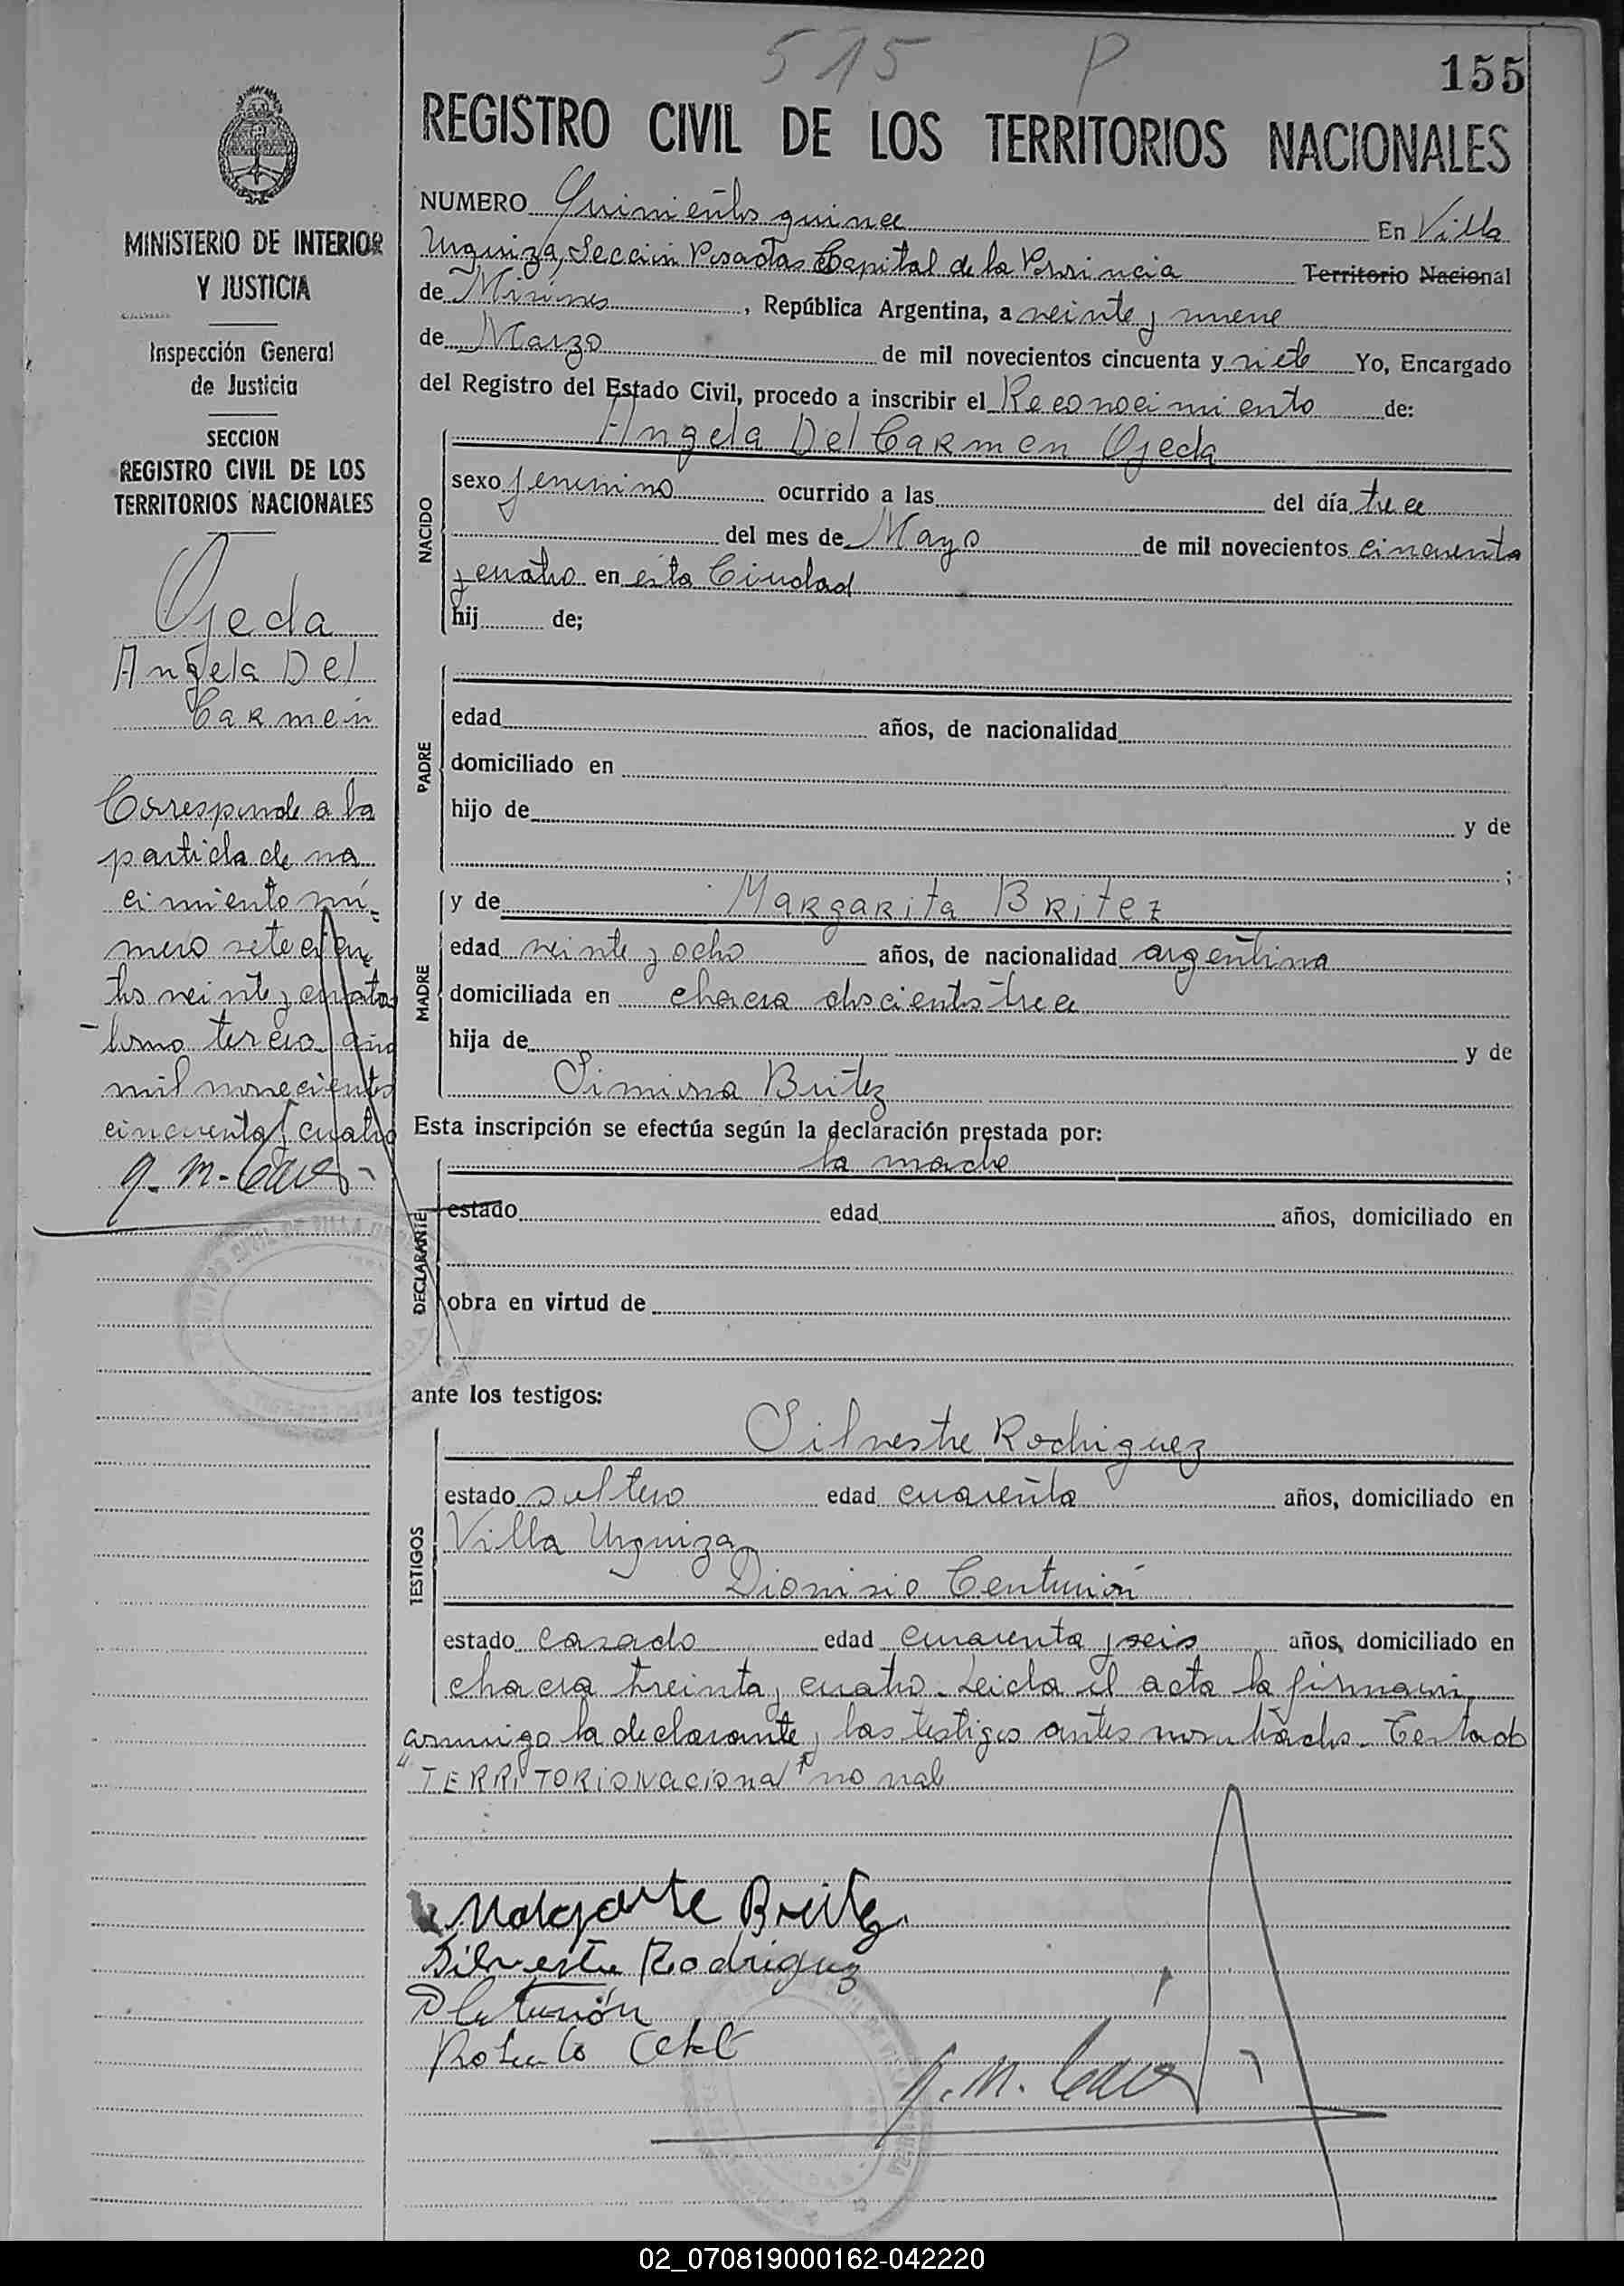 515 P
155
REGISTRO CIVIL DE LOS TERRITORIOS NACIONALES
MINISTERIO DE INTERIOR
Y JUSTICIA
Inspección General
de Justicia
SECCION
REGISTRO CIVIL DE LOS
TERRITORIOS NACIONALES
Ojeda
Angela Del
Carmen
Corresponde a la
partida de na
cimiento nú-
mero setecien
tos veinte y cuatro
tomo tercero año
mil novecientos
cincuenta y cuatro
NUMERO Quinientos quince En Villa
Urquiza, Sección Posadas Capital de la Provincia Territorio Nacional
de Misiones, República Argentina, a veinte y nueve
de Marzo de mil novecientos cincuenta y siete Yo, Encargado
del Registro del Estado Civil, procedo a inscribir el Reconocimiento de:
Angela Del Carmen Ojeda
NACIDO
sexo femenino ocurrido a las del día trece
del mes de Mayo de mil novecientos cincuenta
y cuatro en esta Ciudad
hij de;
PADRE
edad años, de nacionalidad
domiciliado en
hijo de y de
;
MADRE
y de Margarita Britez
edad veinte y ocho años, de nacionalidad argentina
domiciliada en chacra doscientos trece
hija de y de
Simiona Britez
Esta inscripción se efectúa según la declaración prestada por:
la madre
DECLARANTE
estado edad años, domiciliado en
obra en virtud de
ante los testigos:
TESTIGOS
Silvestre Rodriguez
estado soltero edad cuarenta años, domiciliado en
Villa Urquiza
Dionisio Centurión
estado casado edad cuarenta y seis años, domiciliado en
chacra treinta y cuatro. Leida el acta la firmaron
conmigo la declarante y los testigos antes nombrados. Testado
"TERRITORIO Nacional" no vale
Margarita Britez
Silvestre Rodriguez
D Centurión
02_070819000162-042220